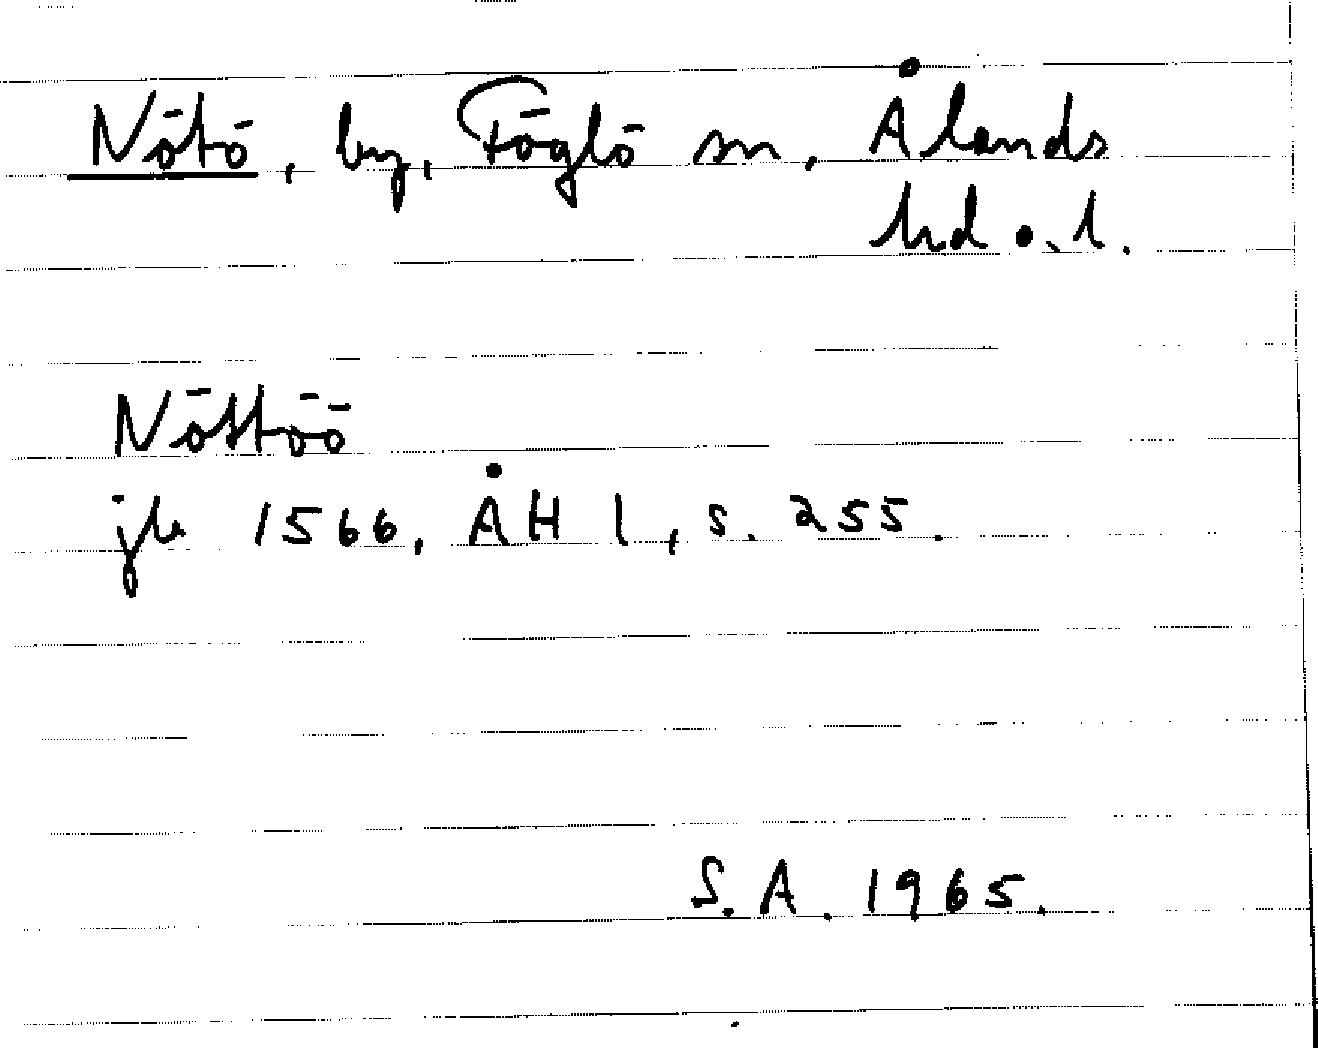 Nötö, by, Föglö sn, Ålands
hd o. l.
Nöttöö
jb 1566, ÅH 1, s. 255.
S.A. 1965.